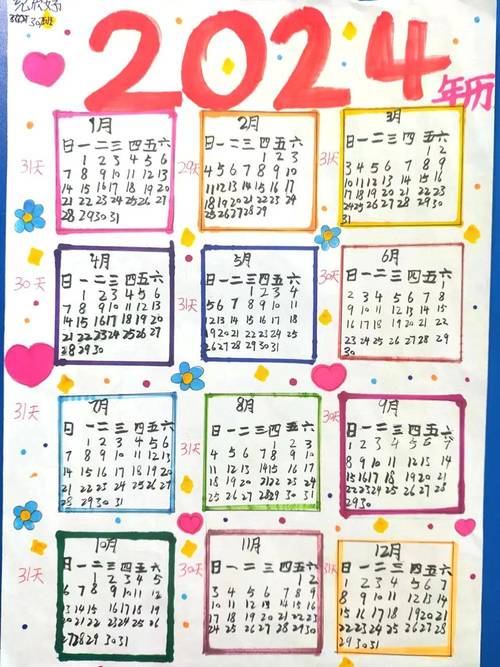 2024
年历
31天
1月
日 一 二 三 四 五 六
1 2 3 4 5 6
7 8 9 10 11 12 13
14 15 16 17 18 19 20
21 22 23 24 25 26 27
28 29 30 31
29天
2月
日 一 二 三 四 五 六
1 2 3
4 5 6 7 8 9 10
11 12 13 14 15 16 17
18 19 20 21 22 23 24
25 26 27 28 29
31天
3月
日 一 二 三 四 五 六
1 2
3 4 5 6 7 8 9
10 11 12 13 14 15 16
17 18 19 20 21 22 23
24 25 26 27 28 29 30
31
30天
4月
日 一 二 三 四 五 六
1 2 3 4 5 6
7 8 9 10 11 12 13
14 15 16 17 18 19 20
21 22 23 24 25 26 27
28 29 30
31天
5月
日 一 二 三 四 五 六
1 2 3 4
5 6 7 8 9 10 11
12 13 14 15 16 17 18
19 20 21 22 23 24 25
26 27 28 29 30 31
30天
6月
日 一 二 三 四 五 六
1
2 3 4 5 6 7 8
9 10 11 12 13 14 15
16 17 18 19 20 21 22
23 24 25 26 27 28 29
30
31天
7月
日 一 二 三 四 五 六
1 2 3 4 5 6
7 8 9 10 11 12 13
14 15 16 17 18 19 20
21 22 23 24 25 26 27
28 29 30 31
31天
8月
日 一 二 三 四 五 六
1 2 3
4 5 6 7 8 9 10
11 12 13 14 15 16 17
18 19 20 21 22 23 24
25 26 27 28 29 30 31
30天
9月
日 一 二 三 四 五 六
1 2 3 4 5 6 7
8 9 10 11 12 13 14
15 16 17 18 19 20 21
22 23 24 25 26 27 28
29 30
31天
10月
日 一 二 三 四 五 六
1 2 3 4 5
6 7 8 9 10 11 12
13 14 15 16 17 18 19
20 21 22 23 24 25 26
27 28 29 30 31
30天
11月
日 一 二 三 四 五 六
1 2
3 4 5 6 7 8 9
10 11 12 13 14 15 16
17 18 19 20 21 22 23
24 25 26 27 28 29 30
31天
12月
日 一 二 三 四 五 六
1 2 3 4 5 6 7
8 9 10 11 12 13 14
15 16 17 18 19 20 21
22 23 24 25 26 27 28
29 30 31